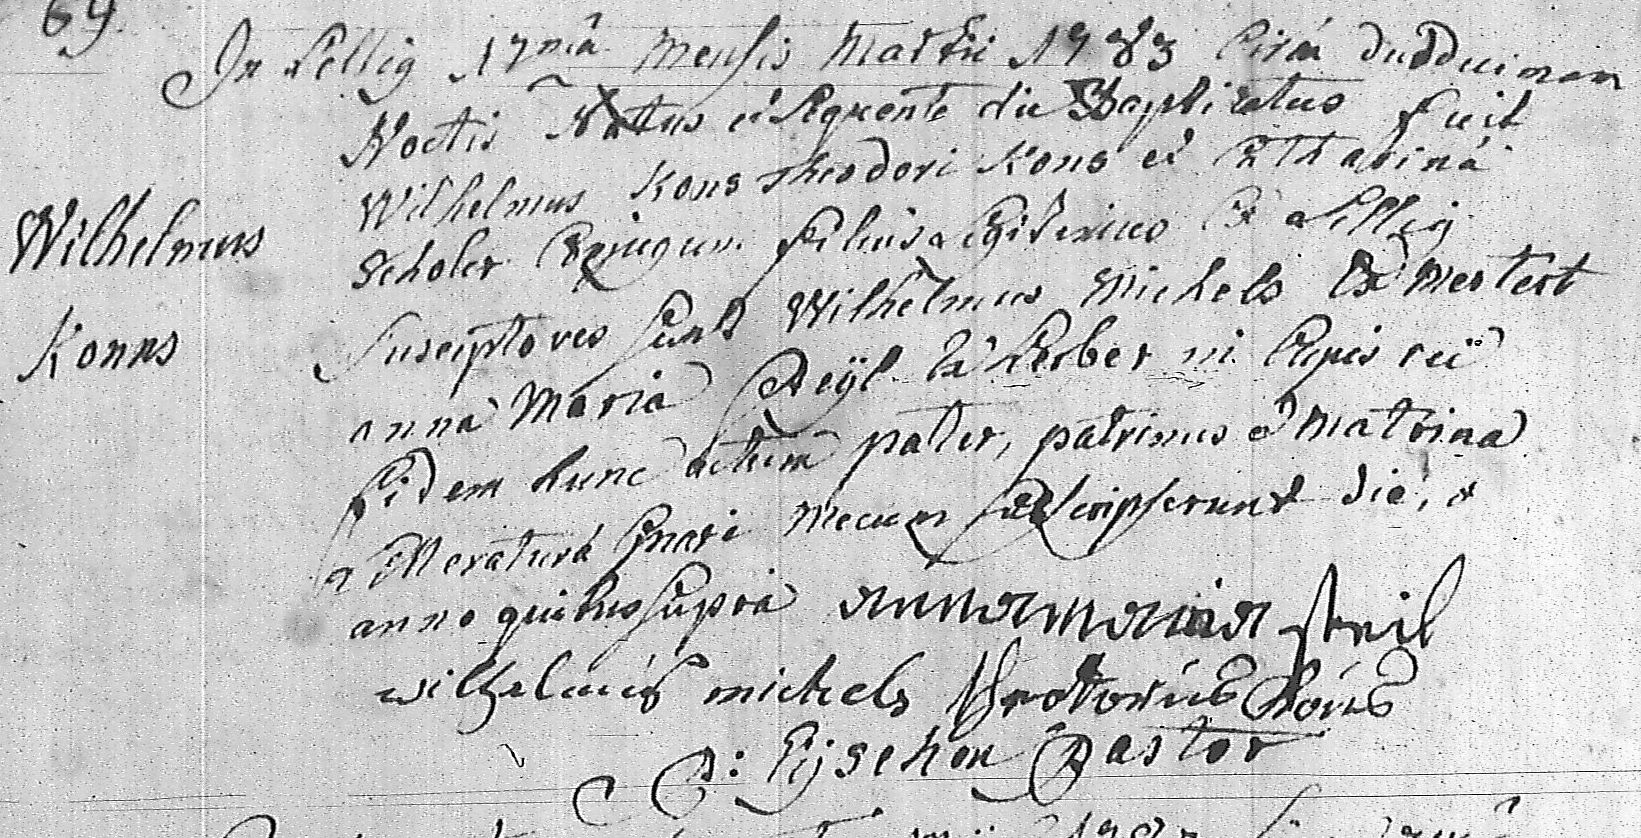 69.
In Lellig 17mâ Mensis Martii 1783 Circà duodecimam
Noctis Natus et sequente die Baptizatus fuit
Wilhelmus Kons Theodori Kons et Catharinâ
Wilhelmus
Scholer Conjugum filius legitimus Ex Lellig
Konns
Susceptores sunt Wilhelmus Michels Ex Mertert
anna Maria Steÿl Ex
fidem hunc actum pater, patrinus et Matrina
litteraturâ gnari Mecum subscripserunt die, et
anno quibus supra annamaria steil
wilhelmus michels theodorus Kons
P: Eÿschen Pastor